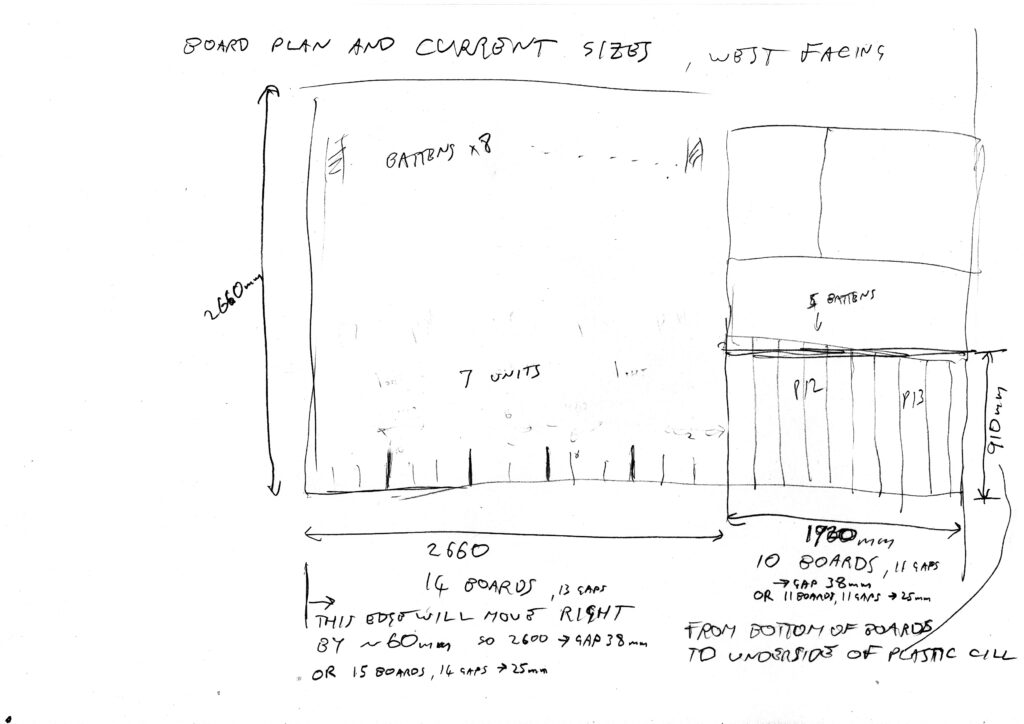 BOARD PLAN AND CURRENT SIZES, WEST FACING
BATTENS x8
2660mm
5 BATTENS
7 UNITS
P12
P13
910mm
2660
1930mm
14 BOARDS, 13 GAPS
10 BOARDS, 11 GAPS
→ GAP 38mm
OR 11 BOARDS, 11 GAPS → 25mm
THIS EDGE WILL MOVE RIGHT
BY ~60mm SO 2600 → GAP 38mm
OR 15 BOARDS, 14 GAPS → 25mm
FROM BOTTOM OF BOARDS
TO UNDERSIDE OF PLASTIC CILL